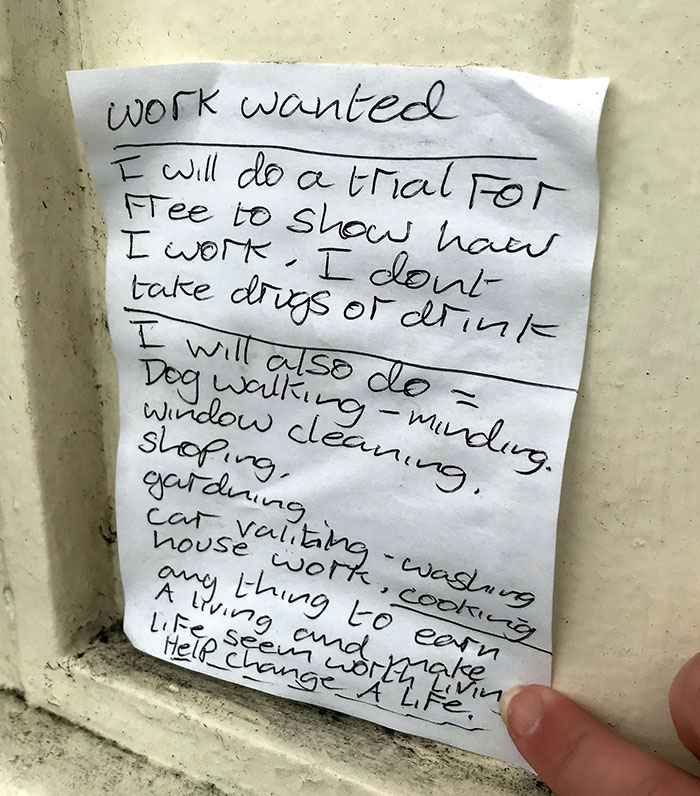 work wanted
I will do a trial For
Free to show how
I work. I dont
take drugs or drink
I will also do =
Dog walking - minding.
window cleaning.
shoping.
gardning
car valiting - washing
house work. cooking
any thing to earn
A living and make
LiFe seem worth Livin
Help change A LiFe.